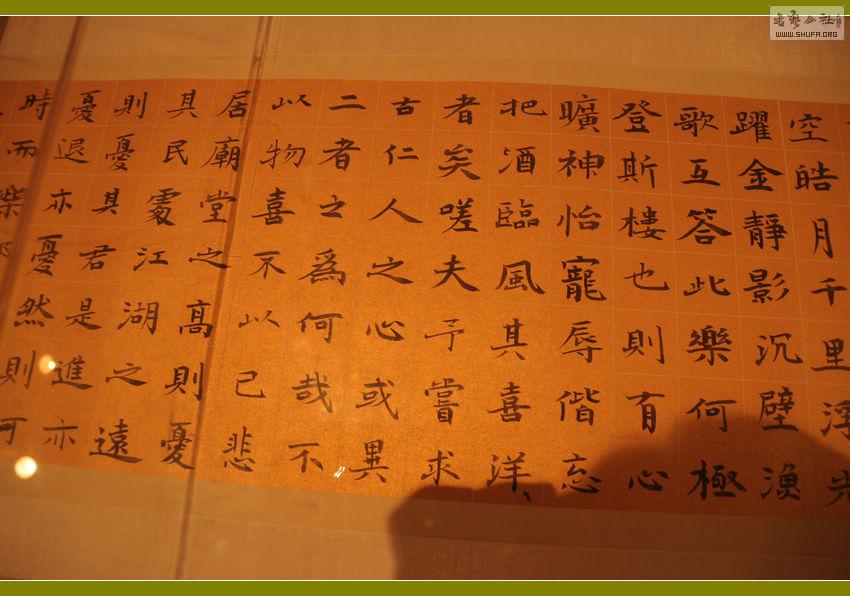 空皓月千里浮光
躍金靜影沉璧漁
歌互答此樂何極
登斯樓也則有心
曠神怡寵辱偕忘
把酒臨風其喜洋、
者矣嗟夫予嘗求
古仁人之心或異
二者之爲何哉不
以物喜不以己悲
居廟堂之高則憂
其民處江湖之遠
則憂其君是進亦
憂退亦憂然則何
時而樂
WWW.SHUFA.ORG